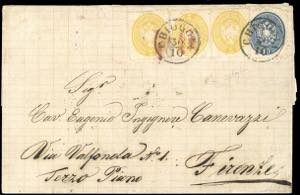 CHIOGGIA
30
10
CHI
10
Sigr
Cav. Eugenio Ingegniere Canevazzi
Via Valfonda No 1.
Terzo Piano
Firenze